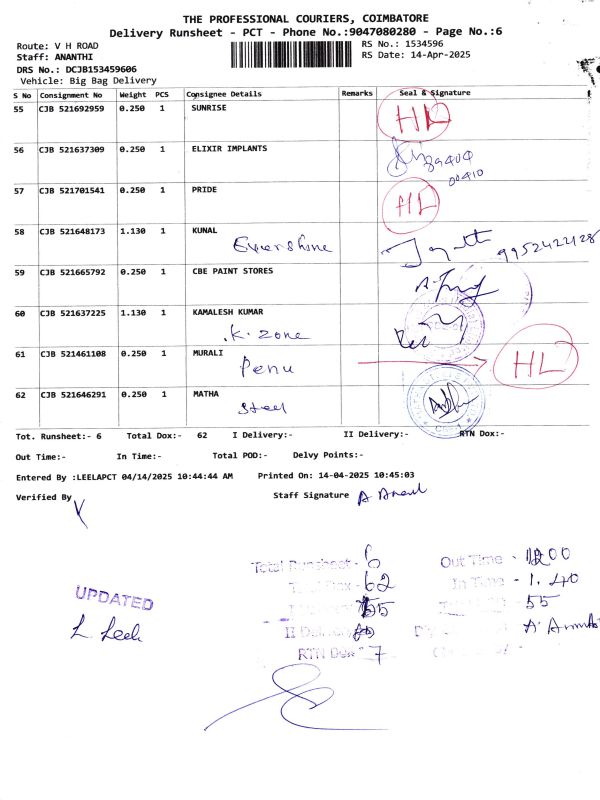 THE PROFESSIONAL COURIERS, COIMBATORE
Delivery Runsheet - PCT - Phone No.:9047080280 - Page No.:6
Route: V H ROAD
RS No.: 1534596
Staff: ANANTHI
RS Date: 14-Apr-2025
DRS No.: DCJB153459606
Vehicle: Big Bag Delivery
S No Consignment No Weight PCS Consignee Details Remarks Seal & Signature
55 CJB 521692959 0.250 1 SUNRISE HL
56 CJB 521637309 0.250 1 ELIXIR IMPLANTS
00410
57 CJB 521701541 0.250 1 PRIDE HL
58 CJB 521648173 1.130 1 KUNAL
9952422128
59 CJB 521665792 0.250 1 CBE PAINT STORES
60 CJB 521637225 1.130 1 KAMALESH KUMAR
K. Zone
61 CJB 521461108 0.250 1 MURALI HL
Penu
62 CJB 521646291 0.250 1 MATHA
Steel
Tot. Runsheet:- 6 Total Dox:- 62 I Delivery:- II Delivery:- RTN Dox:-
Out Time:- In Time:- Total POD:- Delvy Points:-
Entered By :LEELAPCT 04/14/2025 10:44:44 AM Printed On: 14-04-2025 10:45:03
Verified By Staff Signature
Total Runsheet - 6 Out Time - 1200
Total Dox - 62 In Time - 1.40
55 55
UPDATED
L. Leela
II Deliver
RTN Dox - 7